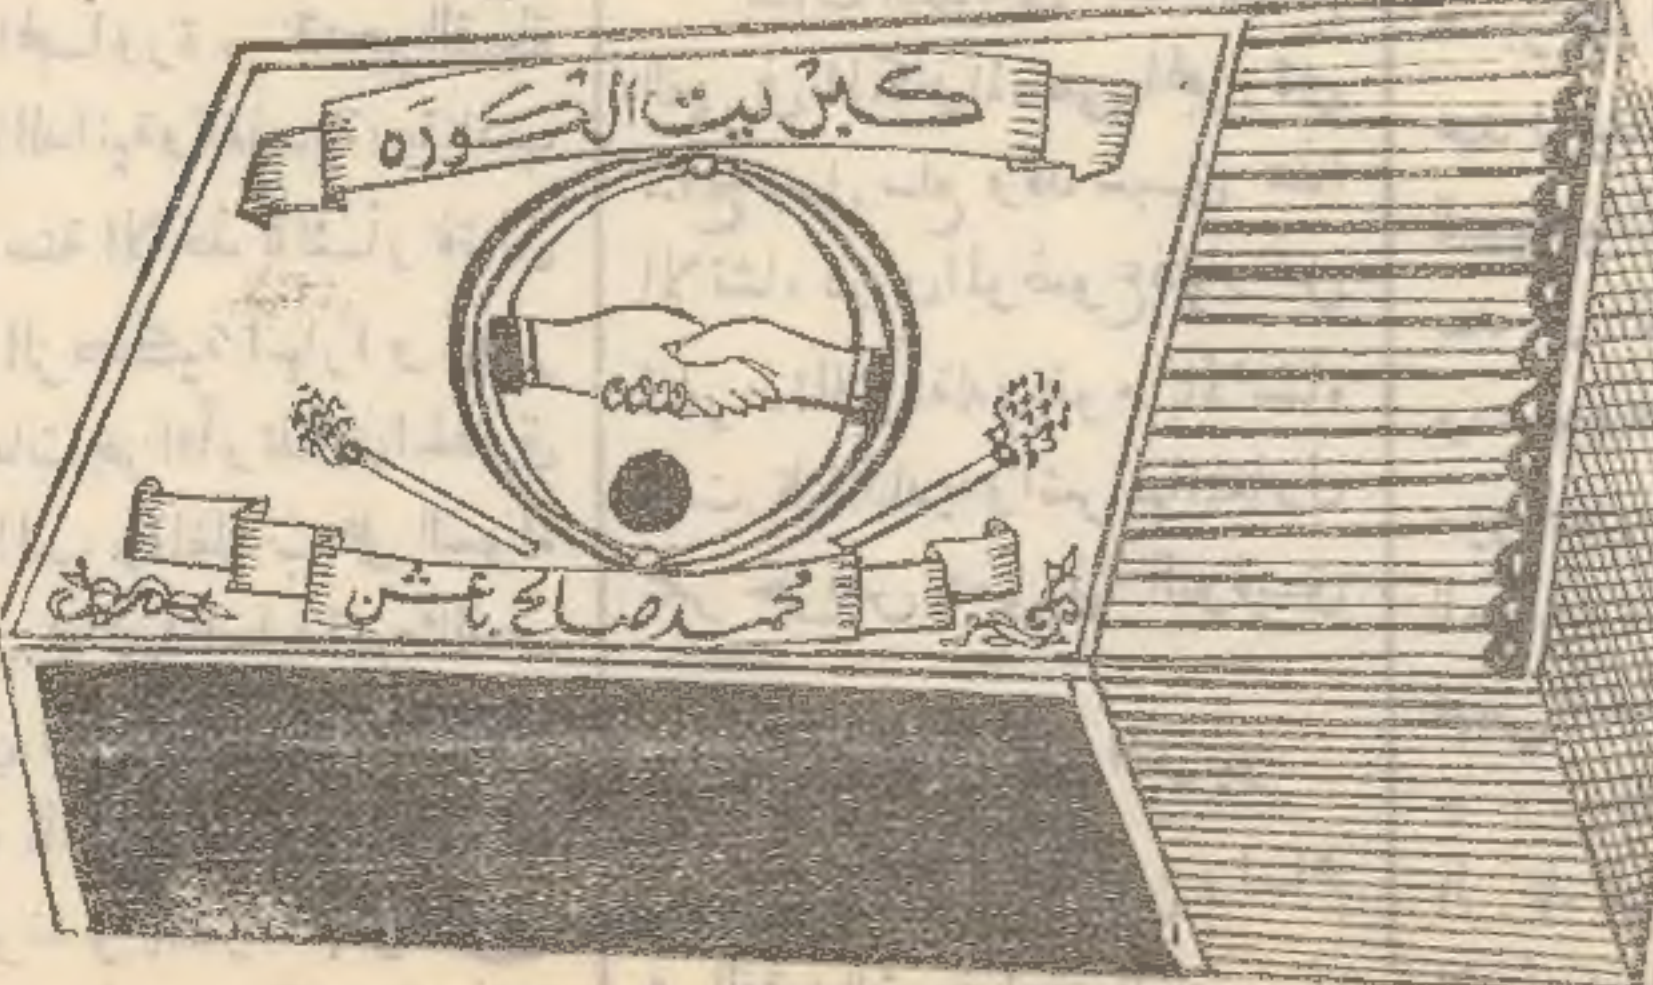 كبريت الكوره
محمد صالح باغشن